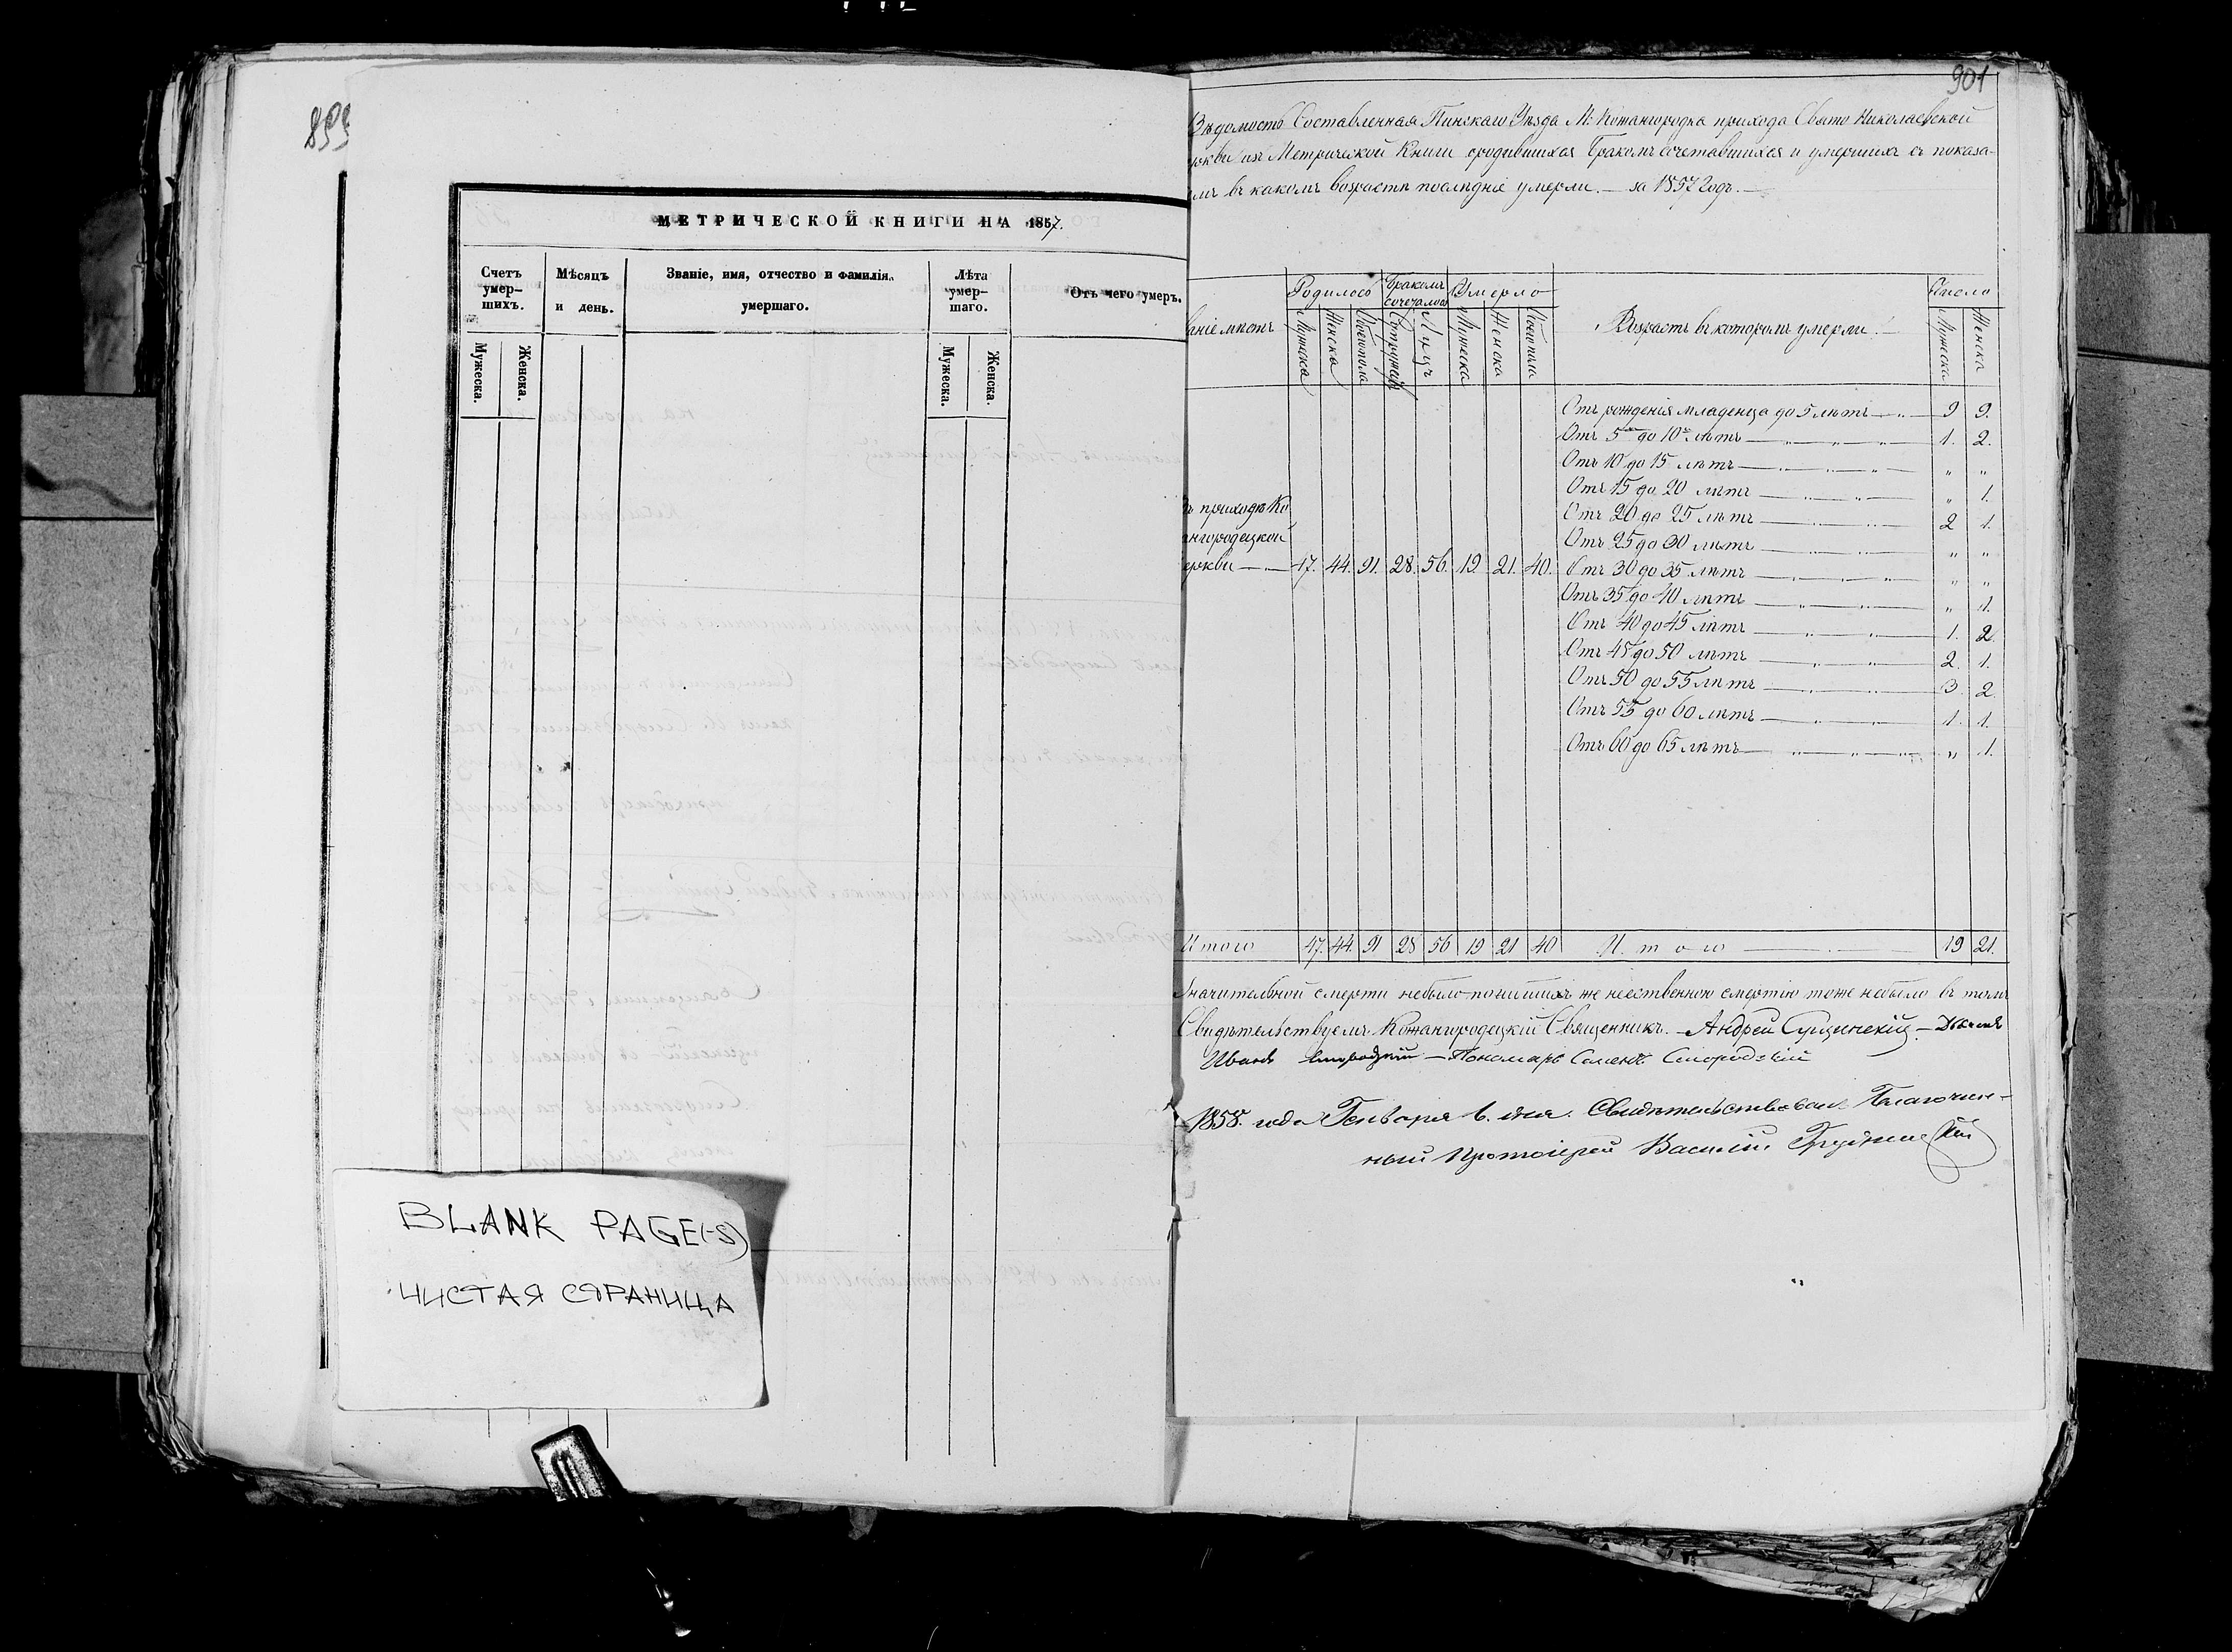 899
МЕТРИЧЕСКОЙ КНИГИ НА 1857.
Счетъ умер-шихъ.
Мѣсяцъ и день.
Званіе, имя, отчество и фамилія умершаго.
Лѣта умер-шаго.
Отъ чего умеръ.
Мужеска. Женска.
Мужеска. Женска.
BLANK PAGE(-S)
ЧИСТАЯ СТРАНИЦА
901
Вѣдомость Составленная Пинскаго Уѣзда М: Кожангородка прихода Свято Николаевской
ркви изъ Метрической Книги о родившихся Бракомъ сочетавшихся и умершихъ съ показа-
мъ въ какомъ возрастѣ послѣдніе умерли. — за 1857 Годъ. —
Родилось Бракомъ сочеталось Умерло Число
аніе мѣстъ Мужеска Женска Обоего пола Супружествъ Лицъ Мужеска Женска Обоего пола Возрастъ въ которомъ умерли. Мужеска Женска
Отъ рожденія младенца до 5 лѣтъ — „ — 9 9.
Отъ 5 до 10 лѣтъ — „ — „ — 1. 2.
Отъ 10 до 15 лѣтъ — „ — „ — „ „
Отъ 15 до 20 лѣтъ — „ — „ 1.
Отъ 20 до 25 лѣтъ — „ — 2 1.
Отъ 25 до 30 лѣтъ — „ — „ „
Отъ 30 до 35 лѣтъ — „ — „ — „ „
Отъ 35 до 40 лѣтъ — „ — „ — „ 1.
Отъ 40 до 45 лѣтъ — „ — „ — 1. 2.
Отъ 45 до 50 лѣтъ — „ — „ — 2. 1.
Отъ 50 до 55 лѣтъ — „ — „ — 3. 2.
Отъ 55 до 60 лѣтъ — „ — „ — 1. 1.
Отъ 60 до 65 лѣтъ — „ — „ — „ 1.
ъ приходѣ Ко
нгородецкой
еркви — 47. 44. 91. 28. 56. 19. 21. 40.
Итого 47. 44. 91 28 56 19 21 40 Итого 19 21.
Значительной смерти небыло погибшихъ же неественною смертію тоже небыло въ томъ
Свидѣтельствуемъ Кожангородецкій Священникъ. — Андрей Сущинскій — Дьячекъ
Иванъ — Пономарь Семенъ Смородскій
1858. года Генваря 6. дня. Свидѣтельствовалъ Благочин-
ный Протоіерей Василій